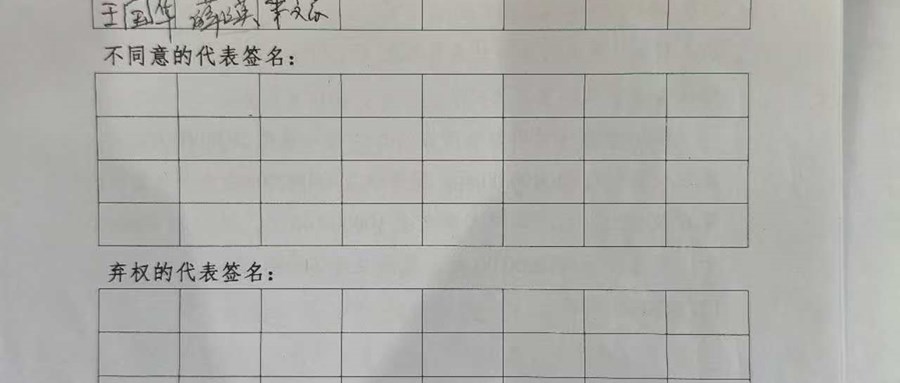 王国华
不同意的代表签名：
弃权的代表签名：